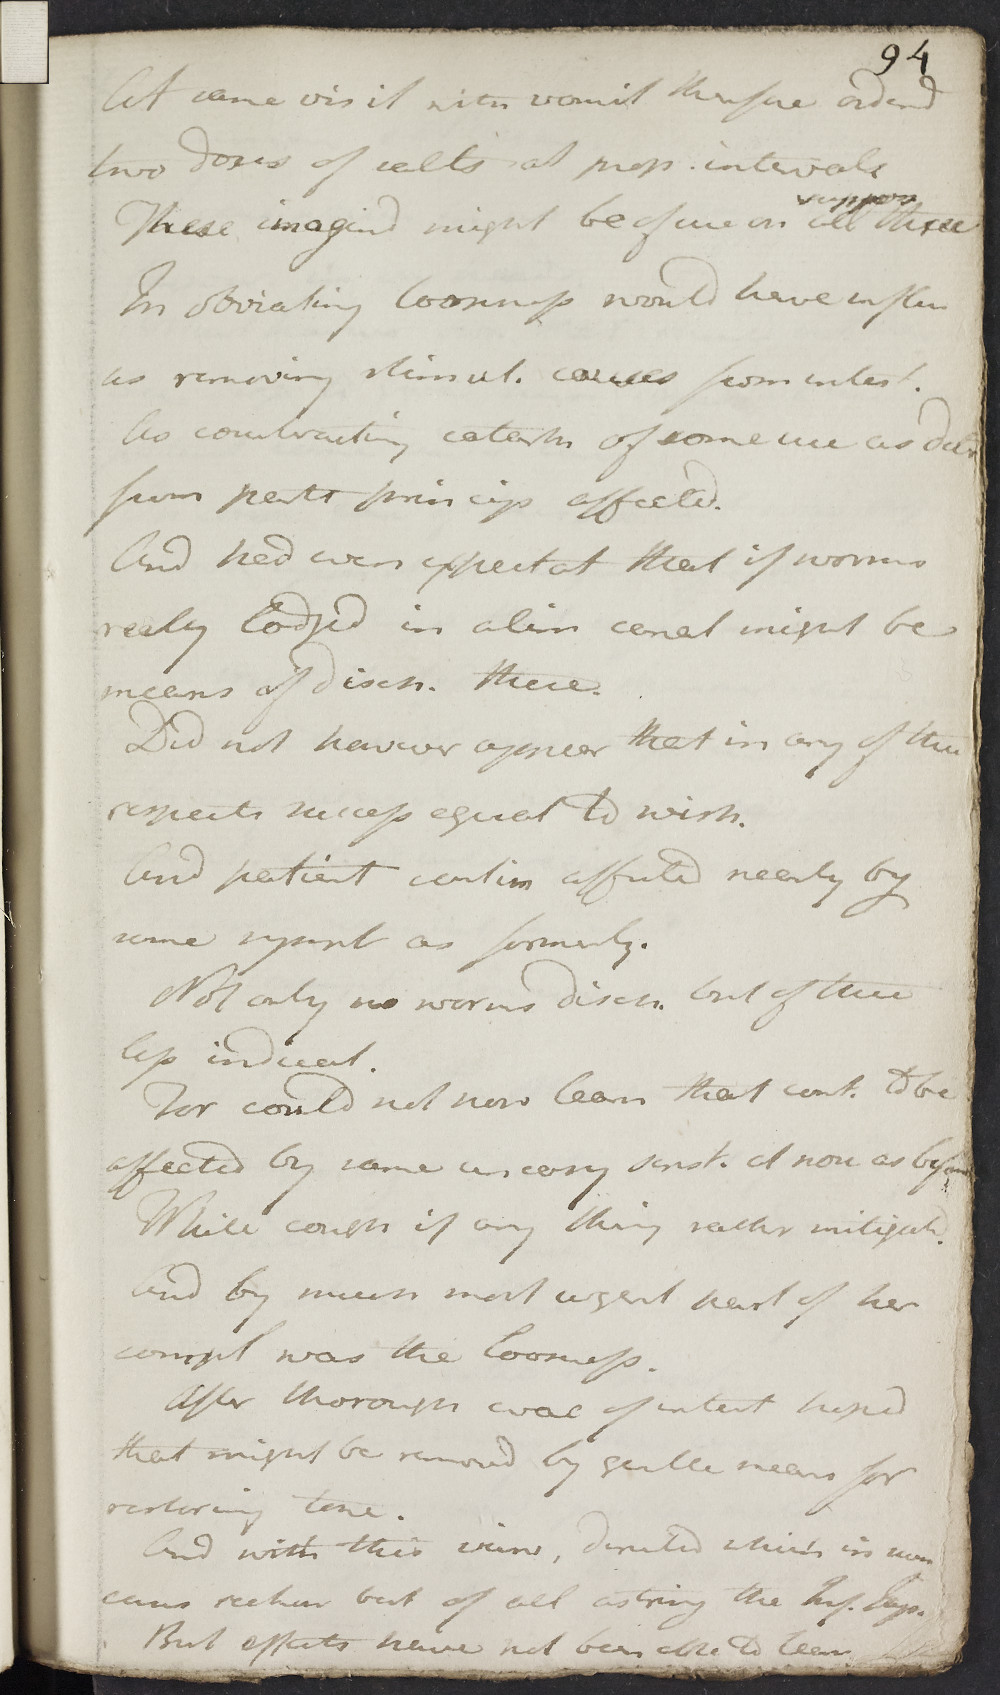 94
At same visit with vomit therefore ordend
two doses of salts at prop. intervals
suppos
These imagind might be of use on all these
In obviating loosness would have influ
as removing stimul. causes from intest.
As counteracting catarrh of some use as der
from parts princip affected.
And had even expectat that if worms
realy lodged in alim canal might be
means of disch. these.
Did not however appear that in any of these
respects success equal to wish.
And patient contin affected nearly by
same sympt as formerly.
Not only no worms disch. but of these
less indicat.
For could not now learn that cont. to be
affected by same uneasy sensat. at nose as before
While cough if any thing rather mitigatd.
And by much most urgent part of her
compl was the loosness.
After thorough evac of intest hoped
that might be removd by gentle means for
restoring tone.
And with this view, directed which in such
cases reckon best of all astring the Inf. Jap.
But effects have not been able to learn